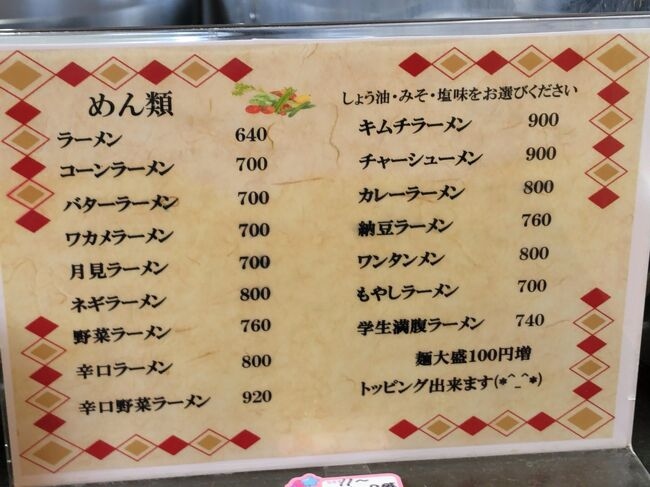 めん類
ラーメン 640
コーンラーメン 700
バターラーメン 700
ワカメラーメン 700
月見ラーメン 700
ネギラーメン 800
野菜ラーメン 760
辛口ラーメン 800
辛口野菜ラーメン 920
しょう油・みそ・塩味をお選びください
キムチラーメン 900
チャーシューメン 900
カレーラーメン 800
納豆ラーメン 760
ワンタンメン 800
もやしラーメン 700
学生満腹ラーメン 740
麺大盛100円増
トッピング出来ます(*^_^*)